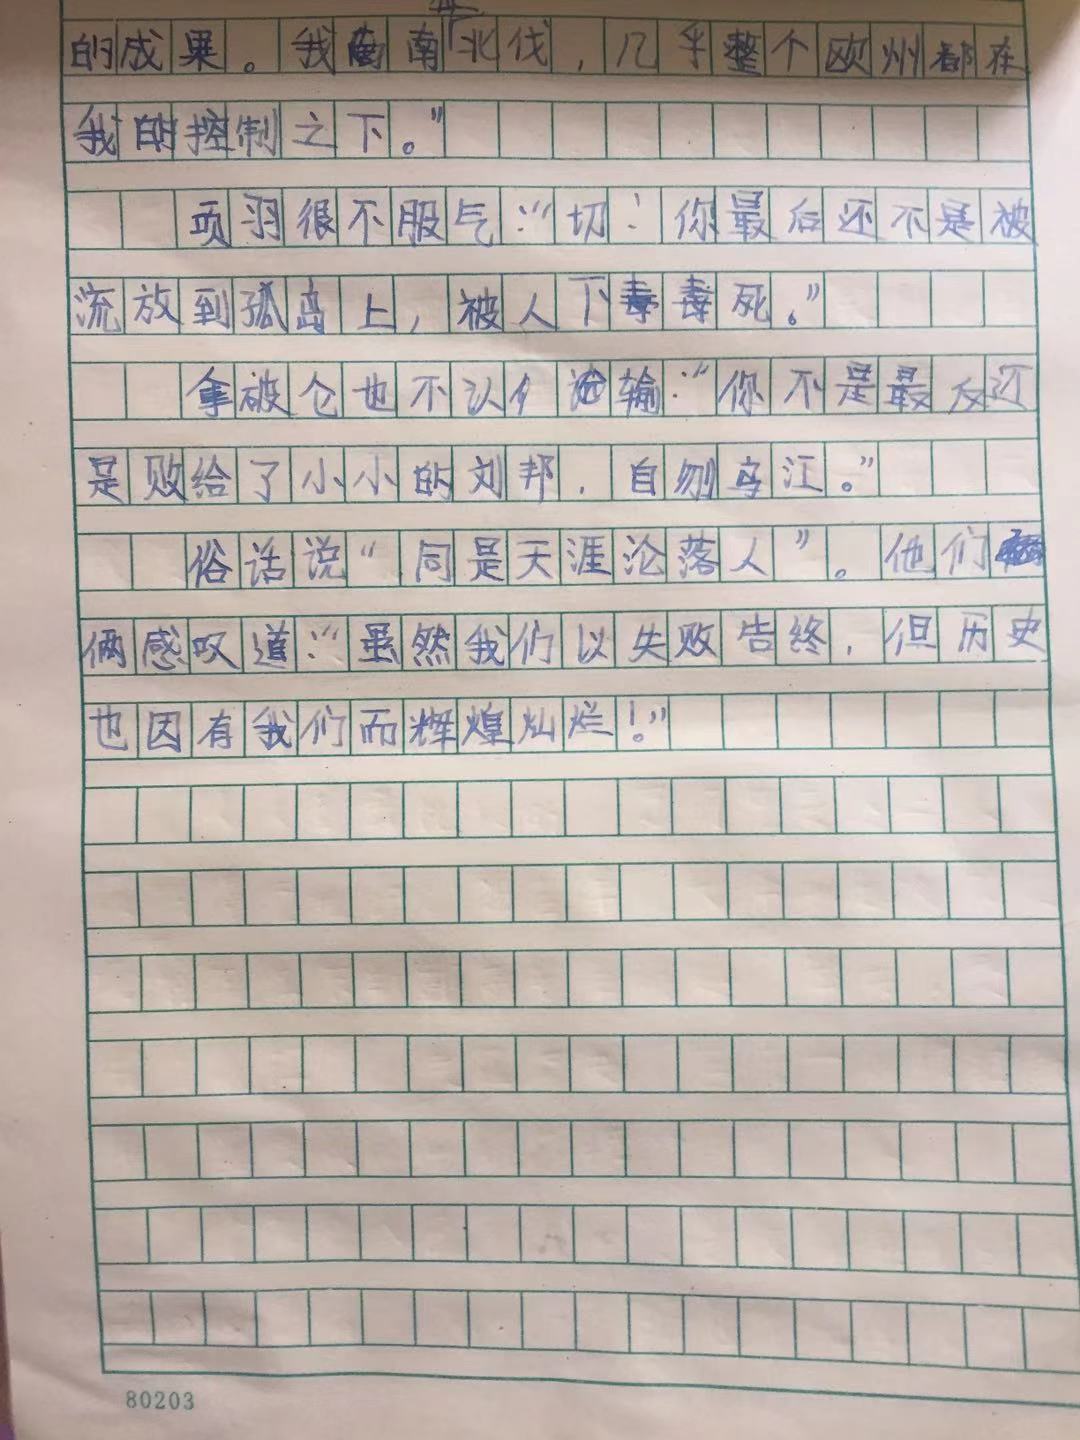 的成果。我南征北伐，几乎整个欧州都在
我的控制之下。”
项羽很不服气：“切！你最后还不是被
流放到孤岛上，被人下毒毒死。”
拿破仑也不认输：“你不是最后还
是败给了小小的刘邦，自刎乌江。”
俗话说“同是天涯沦落人”。他们
俩感叹道：“虽然我们以失败告终，但历史
也因有我们而辉煌灿烂！”
80203